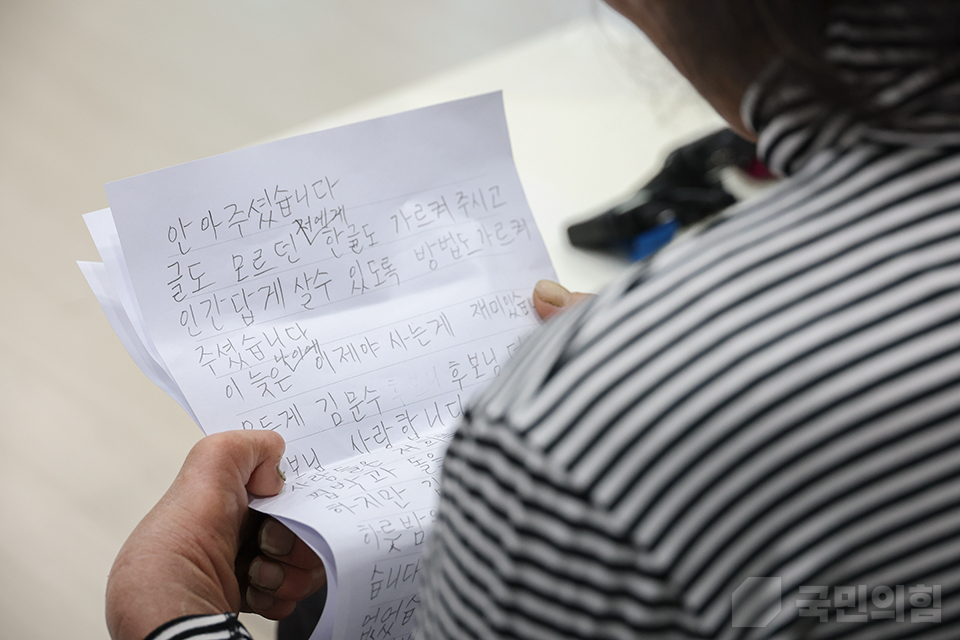 안아주셨습니다
글도 모르던 저에게 한글도 가르켜 주시고
인간답게 살수 있도록 방법도 가르켜
주셨습니다
이 늦은 나이에 이제야 사는게 재미있습
모든게 김문수 후보님
후보님 사랑합니다
하지만
하룻밤
습니다
없었습
국민의힘